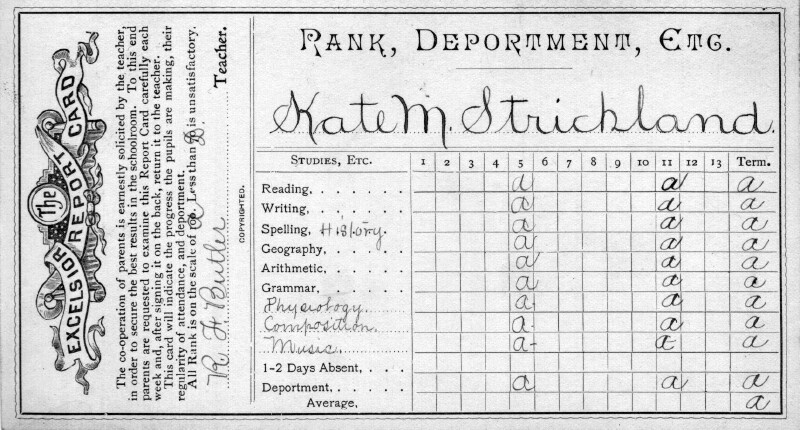 The
EXCELSIOR REPORT CARD
The co-operation of parents is earnestly solicited by the teacher,
in order to secure the best results in the schoolroom. To this end
parents are requested to examine this Report Card carefully each
week and, after signing it on the back, return it to the teacher.
This card will indicate the progress the pupils are making, their
regularity of attendance, and deportment.
All Rank is on the scale of 100. a Less than D. is unsatisfactory.
R. H. Butler Teacher.
COPYRIGHTED.
RANK, DEPORTMENT, ETC.
Kate M. Strickland.
STUDIES, ETC. 1 2 3 4 5 6 7 8 9 10 11 12 13 Term.
Reading, a a a
Writing, a a a
Spelling, History. a a a
Geography, a a a
Arithmetic, a a a
Grammar, a a a
Physiology. a- a a
Composition. a- a a
Music. a- a a
1-2 Days Absent,
Deportment, a a a
Average, a